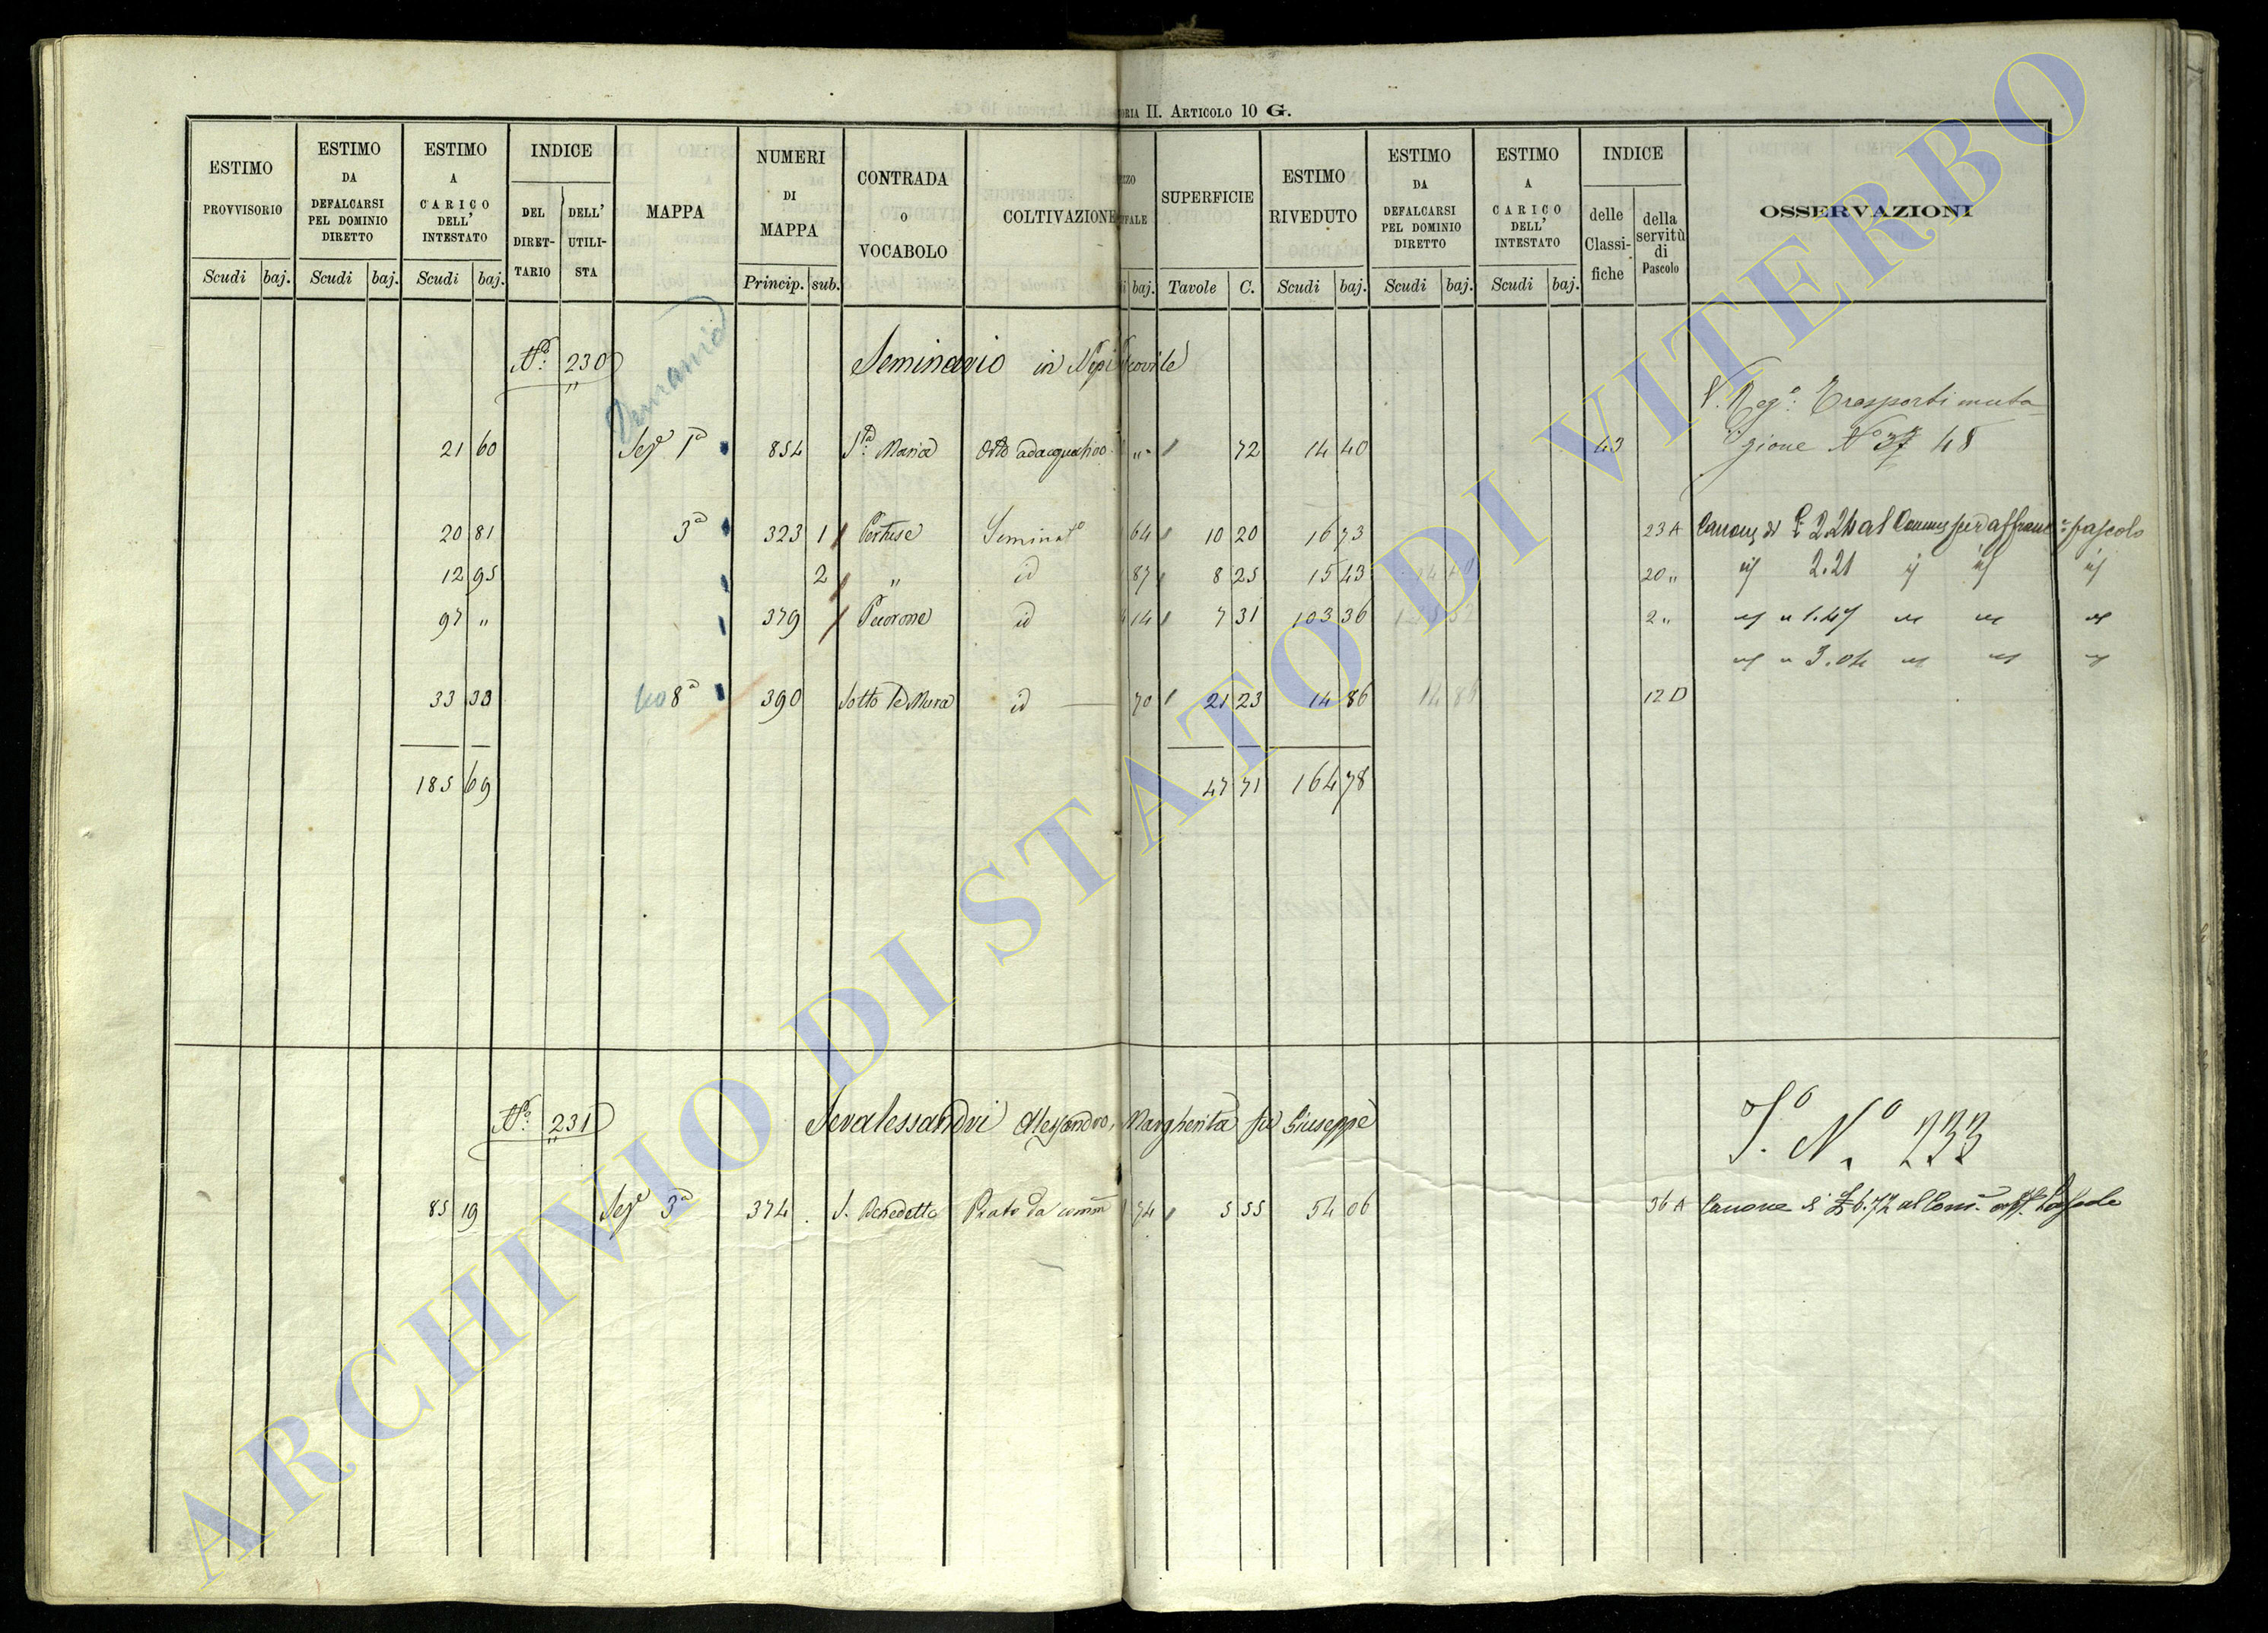 ORIA II. ARTICOLO 10 G.
ESTIMO PROVVISORIO Scudi baj. ESTIMO DA DEFALCARSI PEL DOMINIO DIRETTO Scudi baj. ESTIMO A CARICO DELL' INTESTATO Scudi baj. INDICE DEL DIRETTARIO DELL' UTILISTA MAPPA NUMERI DI MAPPA Princip. sub. CONTRADA O VOCABOLO COLTIVAZIONE baj. SUPERFICIE Tavole C. ESTIMO RIVEDUTO Scudi baj. ESTIMO DA DEFALCARSI PEL DOMINIO DIRETTO Scudi baj. ESTIMO A CARICO DELL' INTESTATO Scudi baj. INDICE delle Classifiche della servitù di Pascolo OSSERVAZIONI
Nº: 230 Seminario in Nepi
Demanio
V. Reg.º: Trasporti muta
21 60 Sez.e 1ª 854 S.ta Maria Orto adacquativo " 72 14 40 43 zione Nº 37 48
20 81 3ª 323 1 Pertuse Seminat.º 64 10 20 16 73 23 A Canone di £ 2.24 al pascolo
12 95 2 " id 87 8 25 15 43 20 " id 2.21 id id id
97 " 379 Pecorone id 14 7 31 103 36 2 " id " 1.47 id id id
id " 3.04 id id id
33 33 8ª 390 Sotto le Mura id 70 21 23 14 86 14 86 12 D
185 69 47 71 164 78
Nº: 231 Seralessandri Alessandro, Margherita fu Giuseppe
Nº 233
85 19 Sez.e 3ª 374 S. Benedetto Prato da 74 5 55 54 06 36 A Canone di £ 6.72 al Com.e Pascolo
ARCHIVIO DI STATO DI VITERBO